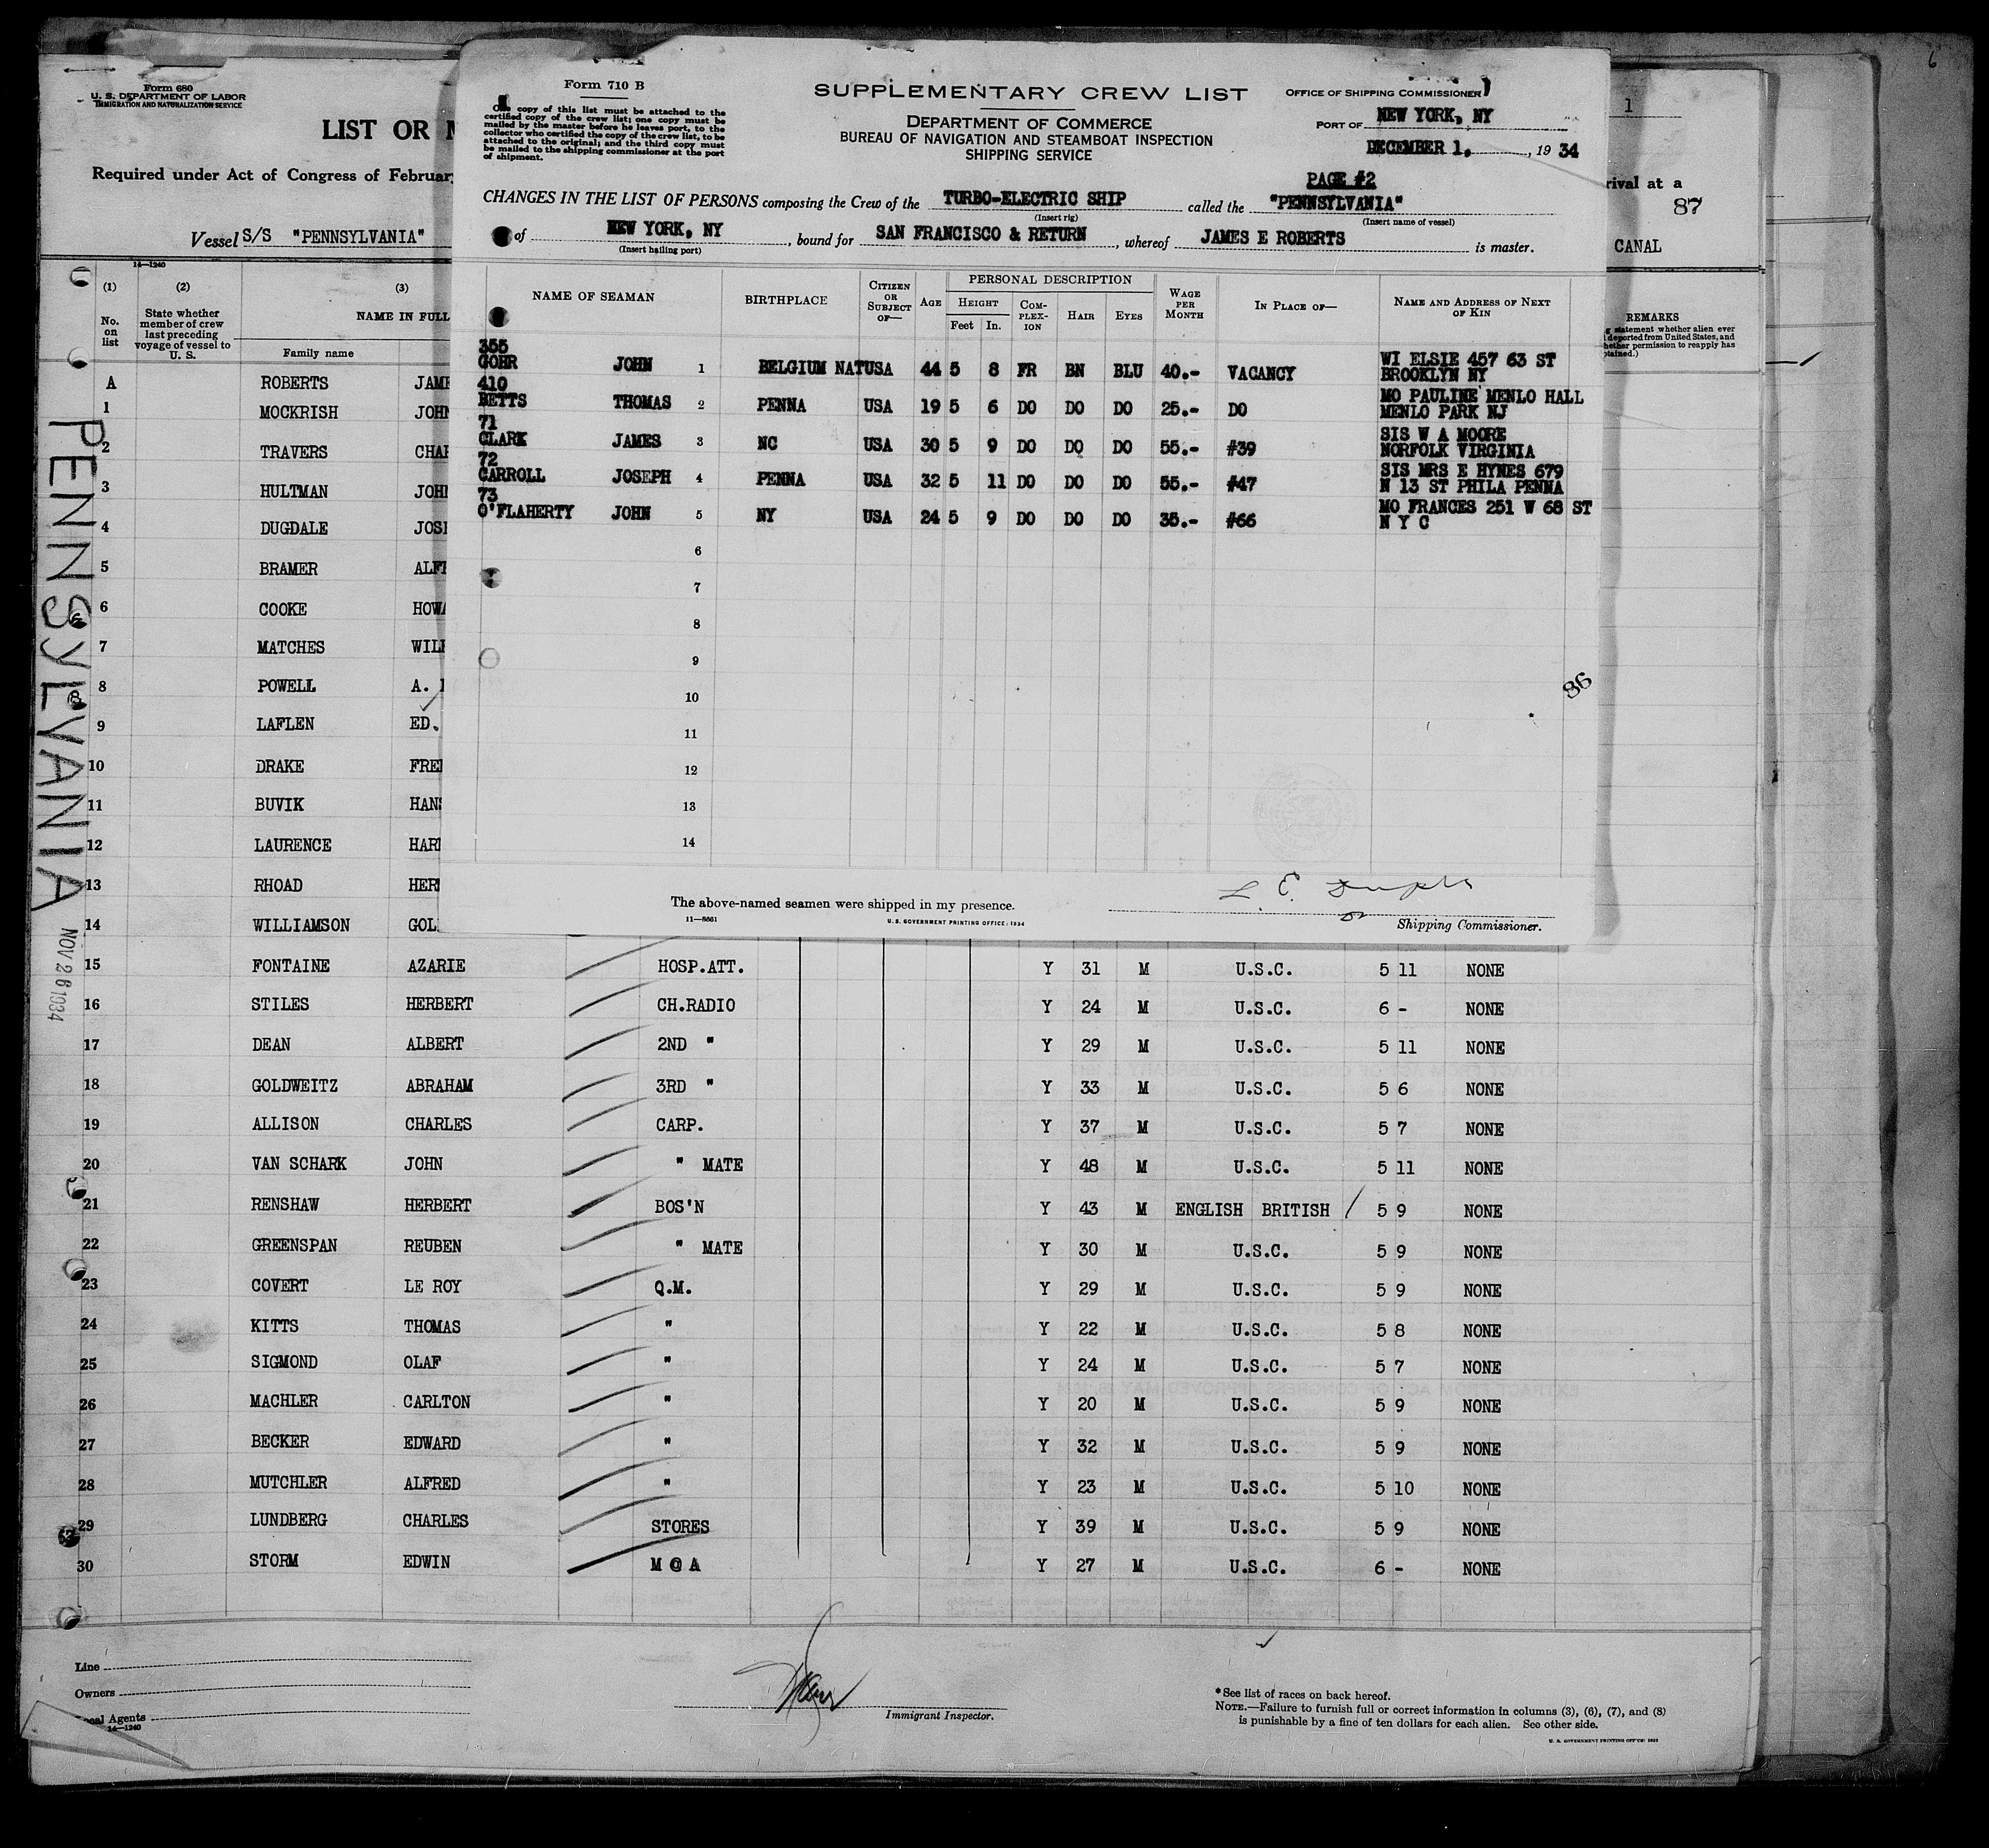 6
Form 680
U. S. DEPARTMENT OF LABOR
IMMIGRATION AND NATURALIZATION SERVICE
LIST OR
Required under Act of Congress of Februar
Vessel S/S "PENNSYLVANIA"
1
rival at a
87
CANAL
Form 710 B
One copy of this list must be attached to the
certified copy of the crew list; one copy must be
mailed by the master before he leaves port, to the
collector who certified the copy of the crew list, to be
attached to the original; and the third copy must
be mailed to the shipping commissioner at the port
of shipment.
SUPPLEMENTARY CREW LIST
DEPARTMENT OF COMMERCE
BUREAU OF NAVIGATION AND STEAMBOAT INSPECTION
SHIPPING SERVICE
OFFICE OF SHIPPING COMMISSIONER
PORT OF NEW YORK, NY
DECEMBER 1, , 19 34
PAGE #2
CHANGES IN THE LIST OF PERSONS composing the Crew of the TURBO-ELECTRIC SHIP called the "PENNSYLVANIA"
(Insert rig) (Insert name of vessel)
of NEW YORK, NY , bound for SAN FRANCISCO & RETURN , whereof JAMES E ROBERTS is master.
(Insert hailing port)
NAME OF SEAMAN BIRTHPLACE CITIZEN OR SUBJECT OF— AGE PERSONAL DESCRIPTION HEIGHT Feet In. COMPLEXION HAIR EYES WAGE PER MONTH IN PLACE OF— NAME AND ADDRESS OF NEXT OF KIN
355
GOHR JOHN 1 BELGIUM NAT USA 44 5 8 FR BN BLU 40.- VACANCY WI ELSIE 457 63 ST
BROOKLYN NY
410
BETTS THOMAS 2 PENNA USA 19 5 6 DO DO DO 25.- DO MO PAULINE MENLO HALL
MENLO PARK NJ
71
CLARK JAMES 3 NC USA 30 5 9 DO DO DO 55.- #39 SIS W A MOORE
NORFOLK VIRGINIA
72
CARROLL JOSEPH 4 PENNA USA 32 5 11 DO DO DO 55.- #47 SIS MRS E HYNES 679
N 13 ST PHILA PENNA
73
O'FLAHERTY JOHN 5 NY USA 24 5 9 DO DO DO 35.- #66 MO FRANCES 251 W 68 ST
N Y C
6
7
8
9
10
11
12
13
14
86
The above-named seamen were shipped in my presence.
11—8661
U. S. GOVERNMENT PRINTING OFFICE: 1934
L. E.
Shipping Commissioner.
14—1240
(1) (2) (3)
No. on list
State whether member of crew last preceding voyage of vessel to U. S.
NAME IN FULL
Family name
REMARKS
statement whether alien ever
deported from United States, and
hether permission to reapply has
btained.)
A ROBERTS JAM
1 MOCKRISH JOHN
2 TRAVERS CHA
3 HULTMAN JOH
4 DUGDALE JOS
5 BRAMER ALF
6 COOKE HOW
7 MATCHES WIL
8 POWELL A.
9 LAFLEN ED.
10 DRAKE FRE
11 BUVIK HAN
12 LAURENCE HAR
13 RHOAD HER
14 WILLIAMSON GOL
15 FONTAINE AZARIE HOSP.ATT. Y 31 M U.S.C. 5 11 NONE
16 STILES HERBERT CH.RADIO Y 24 M U.S.C. 6 - NONE
17 DEAN ALBERT 2ND " Y 29 M U.S.C. 5 11 NONE
18 GOLDWEITZ ABRAHAM 3RD " Y 33 M U.S.C. 5 6 NONE
19 ALLISON CHARLES CARP. Y 37 M U.S.C. 5 7 NONE
20 VAN SCHARK JOHN " MATE Y 48 M U.S.C. 5 11 NONE
21 RENSHAW HERBERT BOS'N Y 43 M ENGLISH BRITISH / 5 9 NONE
22 GREENSPAN REUBEN " MATE Y 30 M U.S.C. 5 9 NONE
23 COVERT LE ROY Q.M. Y 29 M U.S.C. 5 9 NONE
24 KITTS THOMAS " Y 22 M U.S.C. 5 8 NONE
25 SIGMOND OLAF " Y 24 M U.S.C. 5 7 NONE
26 MACHLER CARLTON " Y 20 M U.S.C. 5 9 NONE
27 BECKER EDWARD " Y 32 M U.S.C. 5 9 NONE
28 MUTCHLER ALFRED " Y 23 M U.S.C. 5 10 NONE
29 LUNDBERG CHARLES STORES Y 39 M U.S.C. 5 9 NONE
30 STORM EDWIN M @ A Y 27 M U.S.C. 6 - NONE
PENNSYLVANIA
NOV 26 1934
Line
Owners
Local Agents
14—1240
Immigrant Inspector.
*See list of races on back hereof.
NOTE.—Failure to furnish full or correct information in columns (3), (6), (7), and (8)
is punishable by a fine of ten dollars for each alien. See other side.